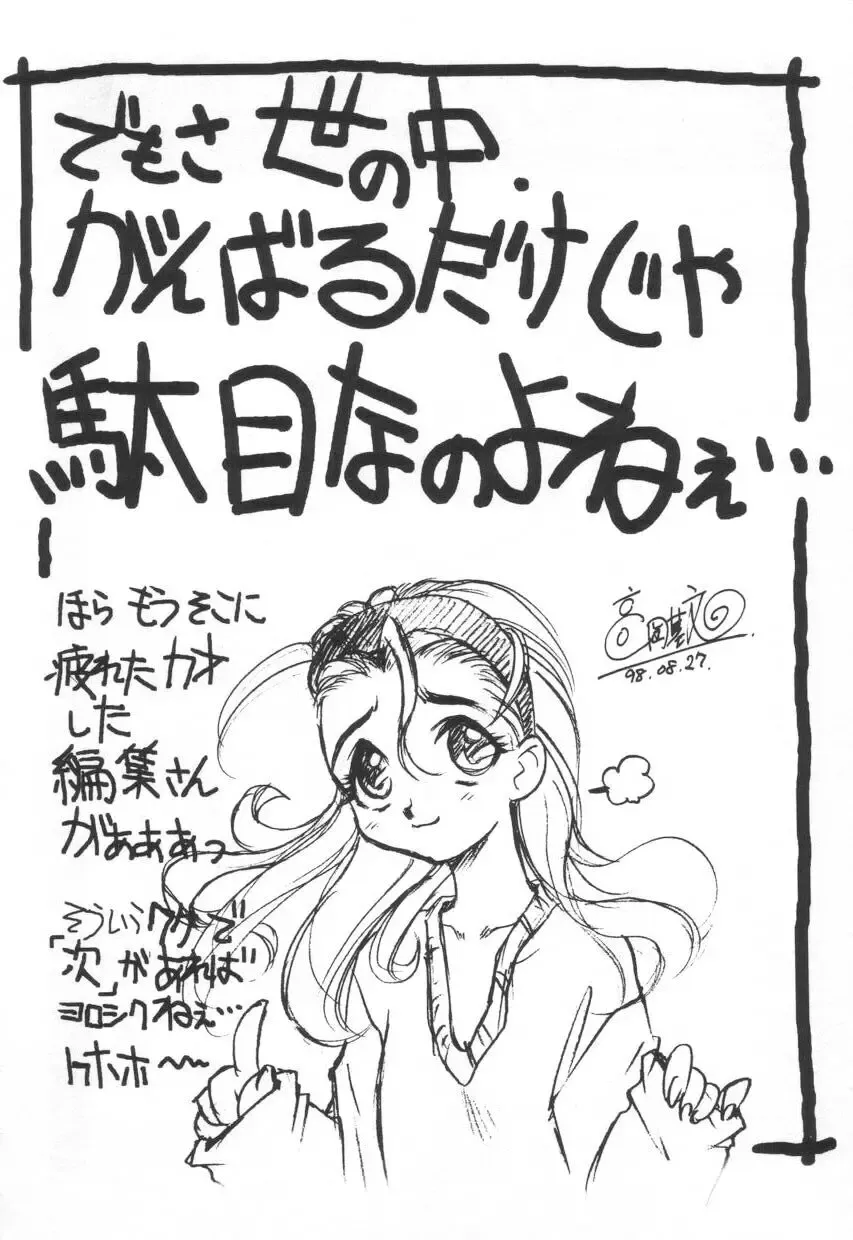 でもさ 世の中.
がんばるだけじゃ
駄目なのよねぇ…
ほら もうそこに
疲れたカオ
した
編集さん
がぁぁぁっ
そういうワケで
「次」があれば
ヨロシクねぇ…
トホホ〜〜
高岡基文
98.08.27.